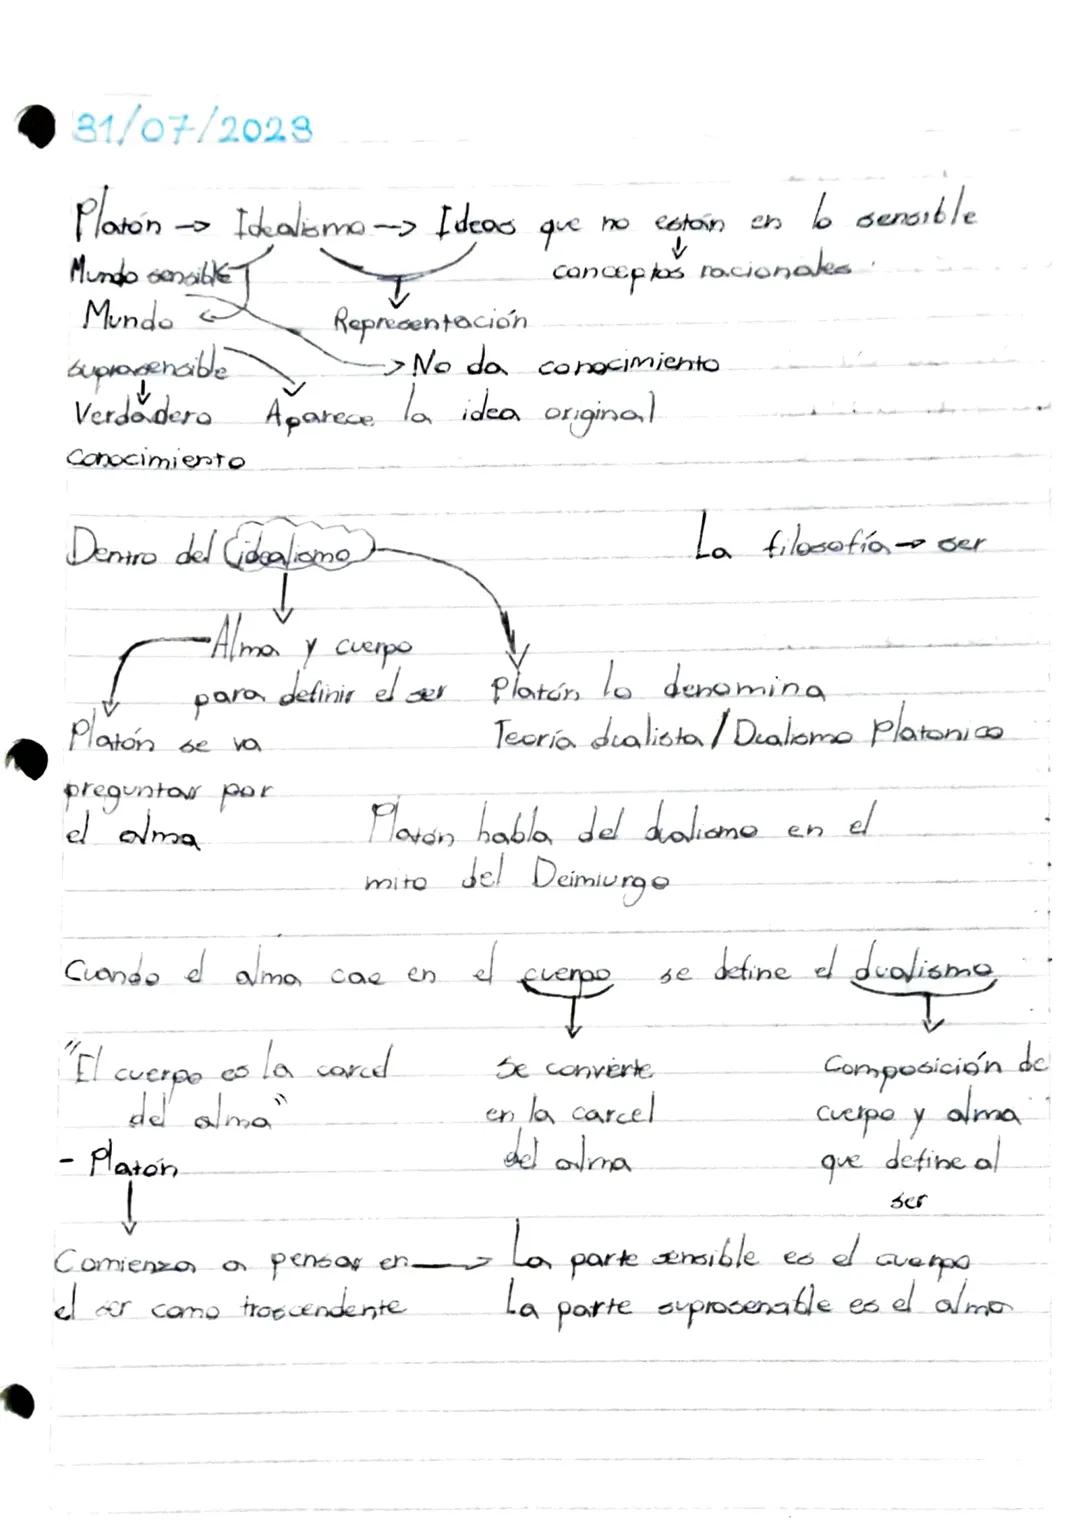 31/07/2023
Platón -> Idealismo -> Ideas que no están en lo sensible
Mundo sensible
conceptos racionales.
Mundo
Representación
suprasensible
-> No da conocimiento
Verdadero Aparece la idea original
Conocimiento
Dentro del idealismo
La filosofía → ser
Alma y cuerpo
para definir el ser
Platón lo denomina
Platón se va
Teoría dualista / Dualismo Platonico
preguntar por
el alma
Platón habla del dualismo en el
mito del Deimiurgo
Cuando el alma cae en el cuerpo se define el dualismo
"El cuerpo es la carcel
Se convierte
Composición de
del alma"
en la carcel
cuerpo y alma
- Platón
del alma
que define al
ser
Comienza a pensar en -> La parte sensible es el cuerpo
el ser como trascendente La parte suprasensible es el alma